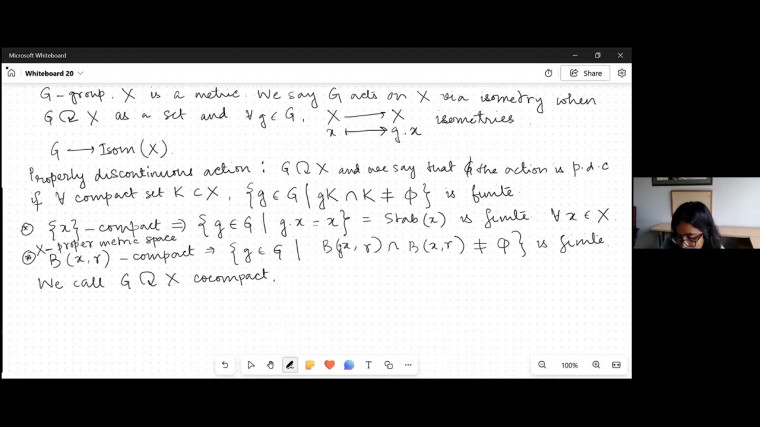 Microsoft Whiteboard
Whiteboard 20
Share
G - group. X is a metric. We say G acts on X via isometry when
G ↻ X as a set and ∀ g ∈ G, X ⟶ X isometries
x ⟼ g.x
G ⟶ Isom (X).
Properly discontinuous action : G ↻ X and we say that the action is p.d.c
if ∀ compact set K ⊂ X, {g ∈ G | gK ∩ K ≠ Φ} is finite.
⊛ {x} - compact ⇒ {g ∈ G | g.x = x} = Stab(x) is finite ∀ x ∈ X
X - proper metric space
⊛ B(x, r) - compact ⇒ {g ∈ G | B(gx, r) ∩ B(x, r) ≠ Φ} is finite
We call G ↻ X cocompact.
T
100%